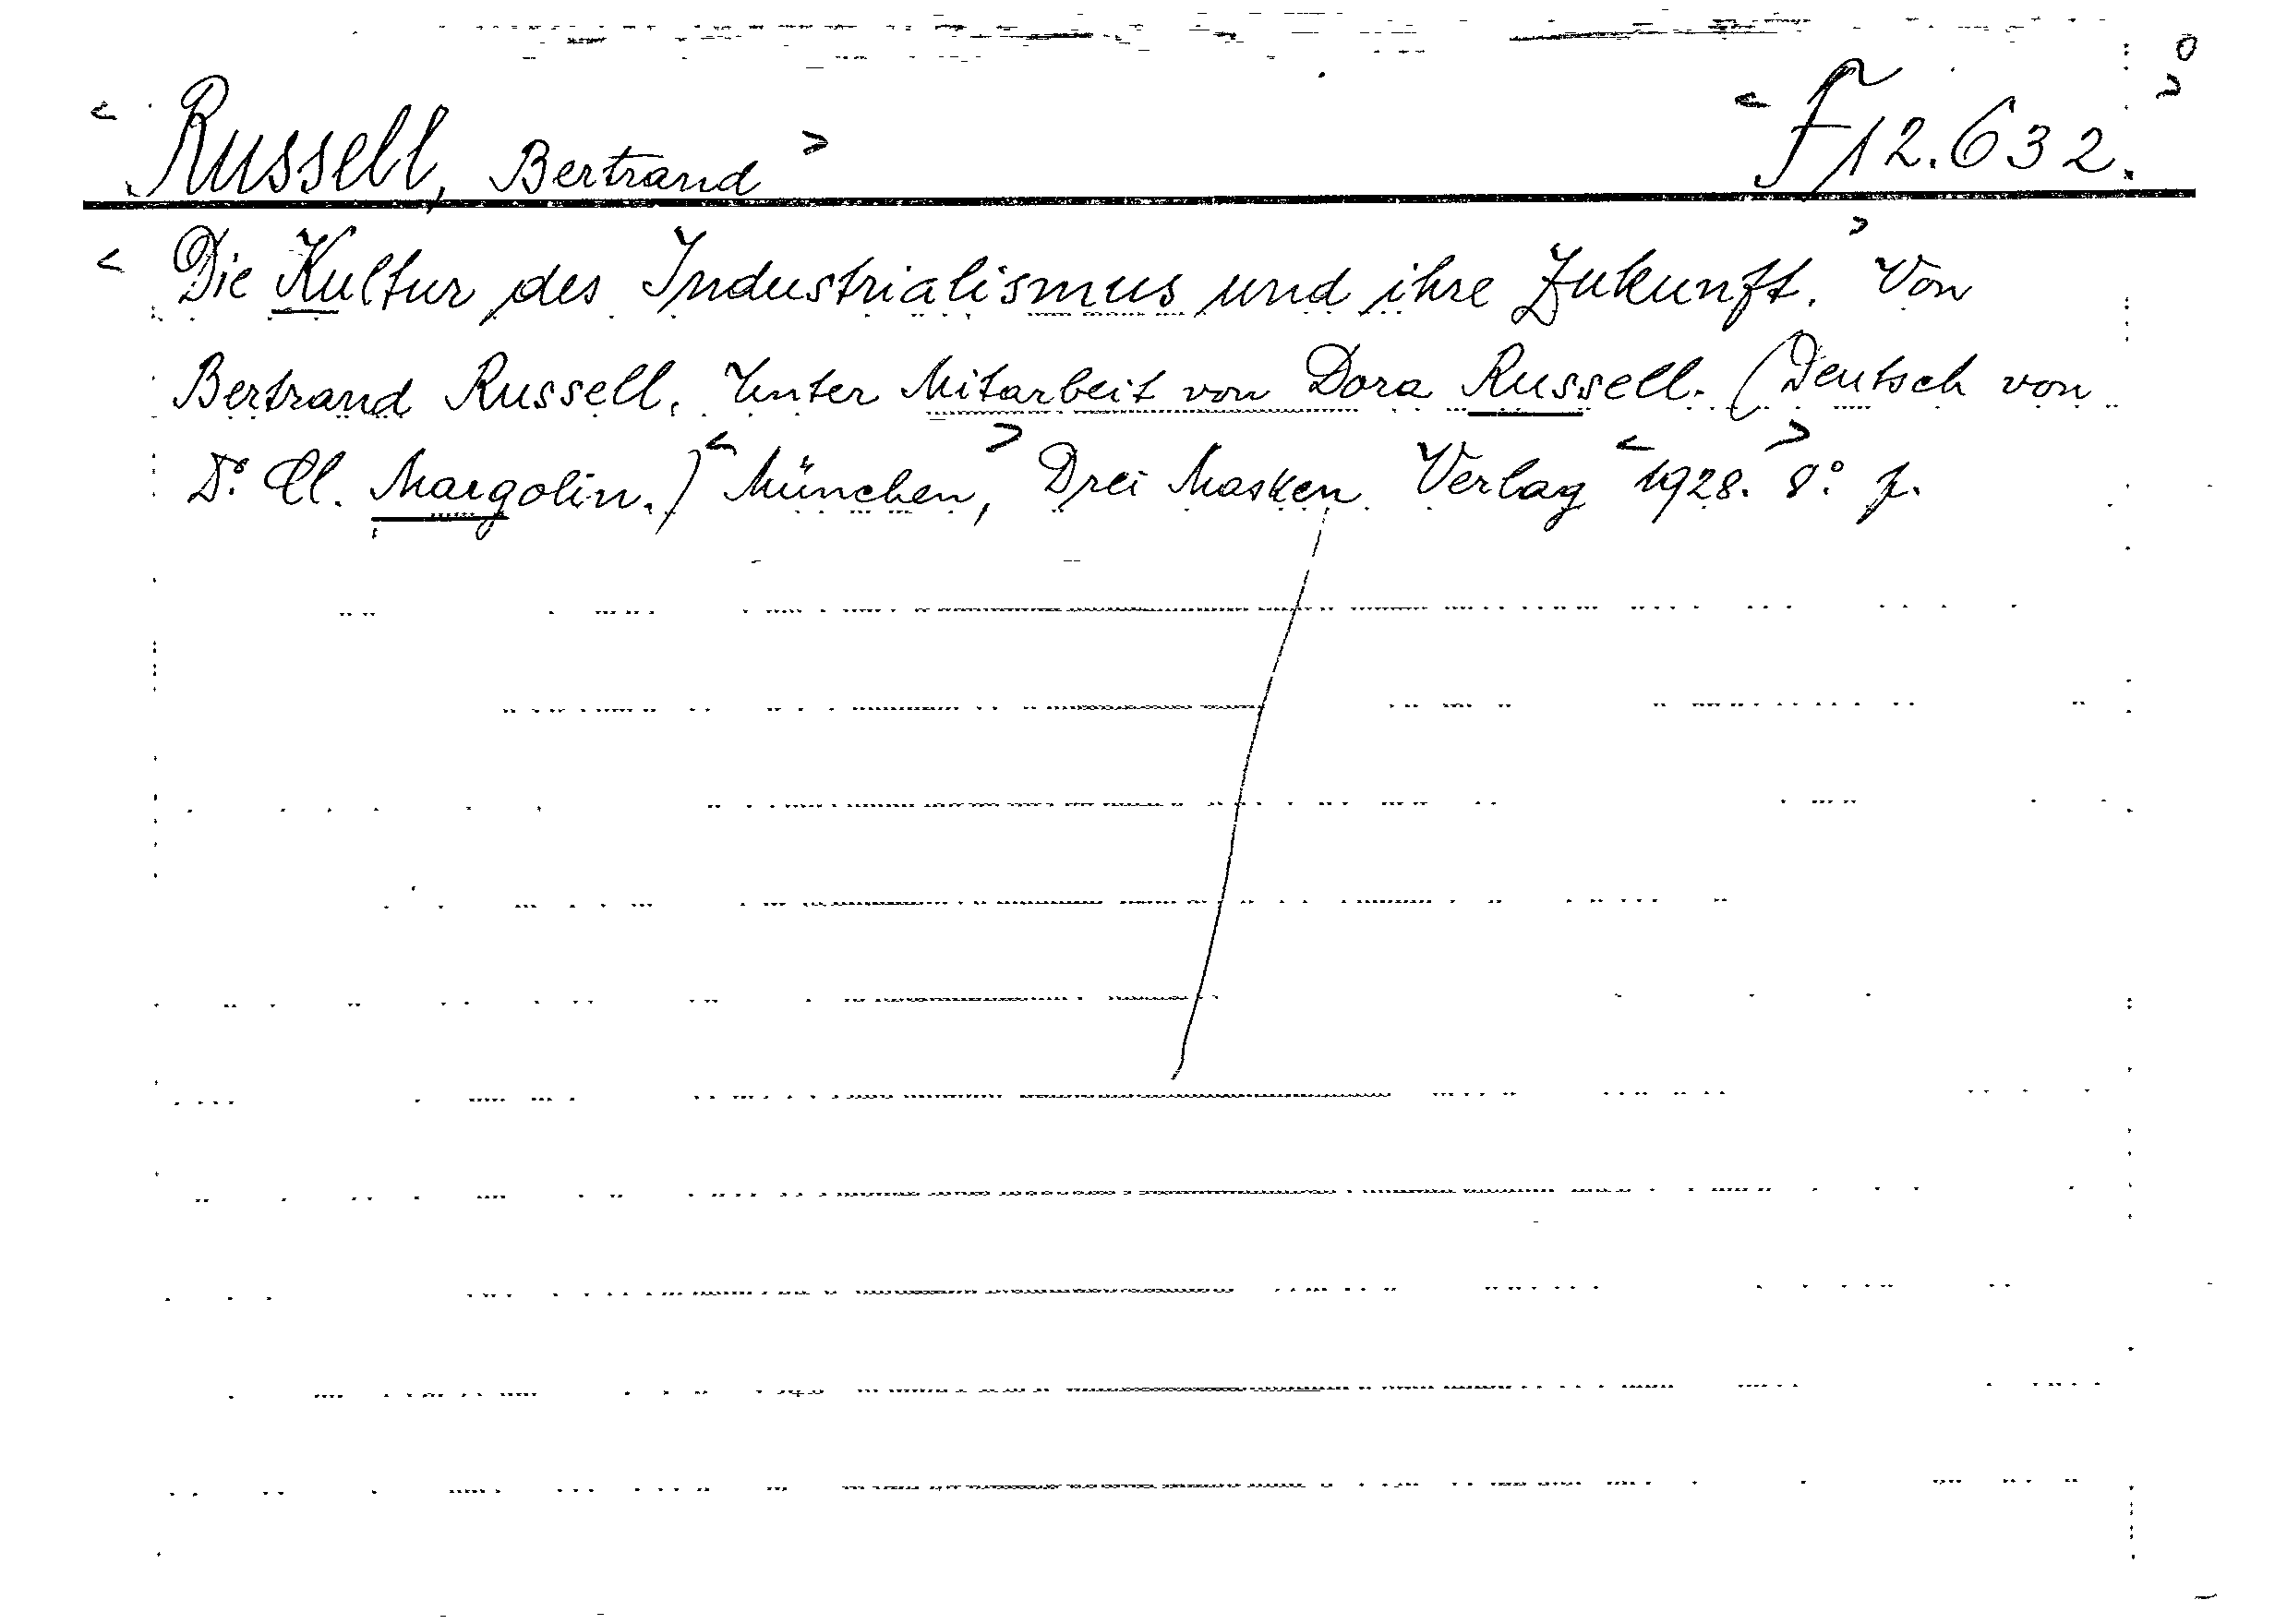 < Russell, Bertrand > < F 12.632. >
< Die Kultur des Industrialismus und ihre Zukunft. > Von
Bertrand Russell. Unter Mitarbeit von Dora Russell. (Deutsch von
Dr. Cl. Margolin.) < München, > Drei Masken Verlag < 1928. > 8°.